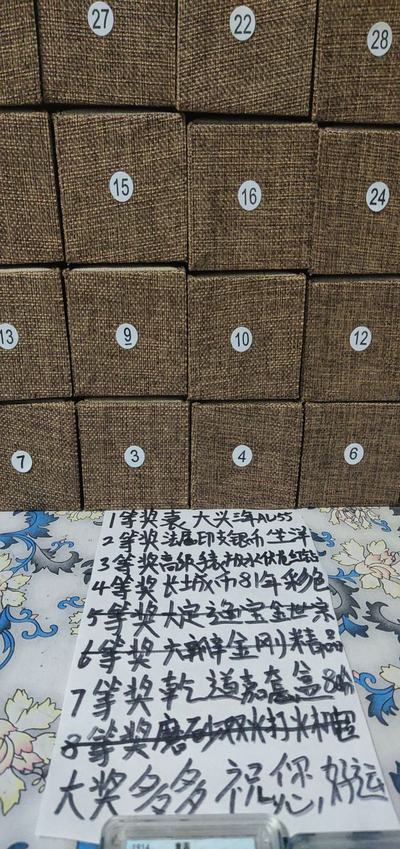 27 22 28
15 16 24
13 9 10 12
7 3 4 6
1等奖袁大头三年AU55
2等奖法属印支银币坐洋
3等奖高级
4等奖长城币81年彩色
5等奖大定通宝金世宗
6等奖六瓣金刚精品
7等奖乾道嘉 盒8
8等奖磨砂双水打水
大奖多多祝您好运
1914